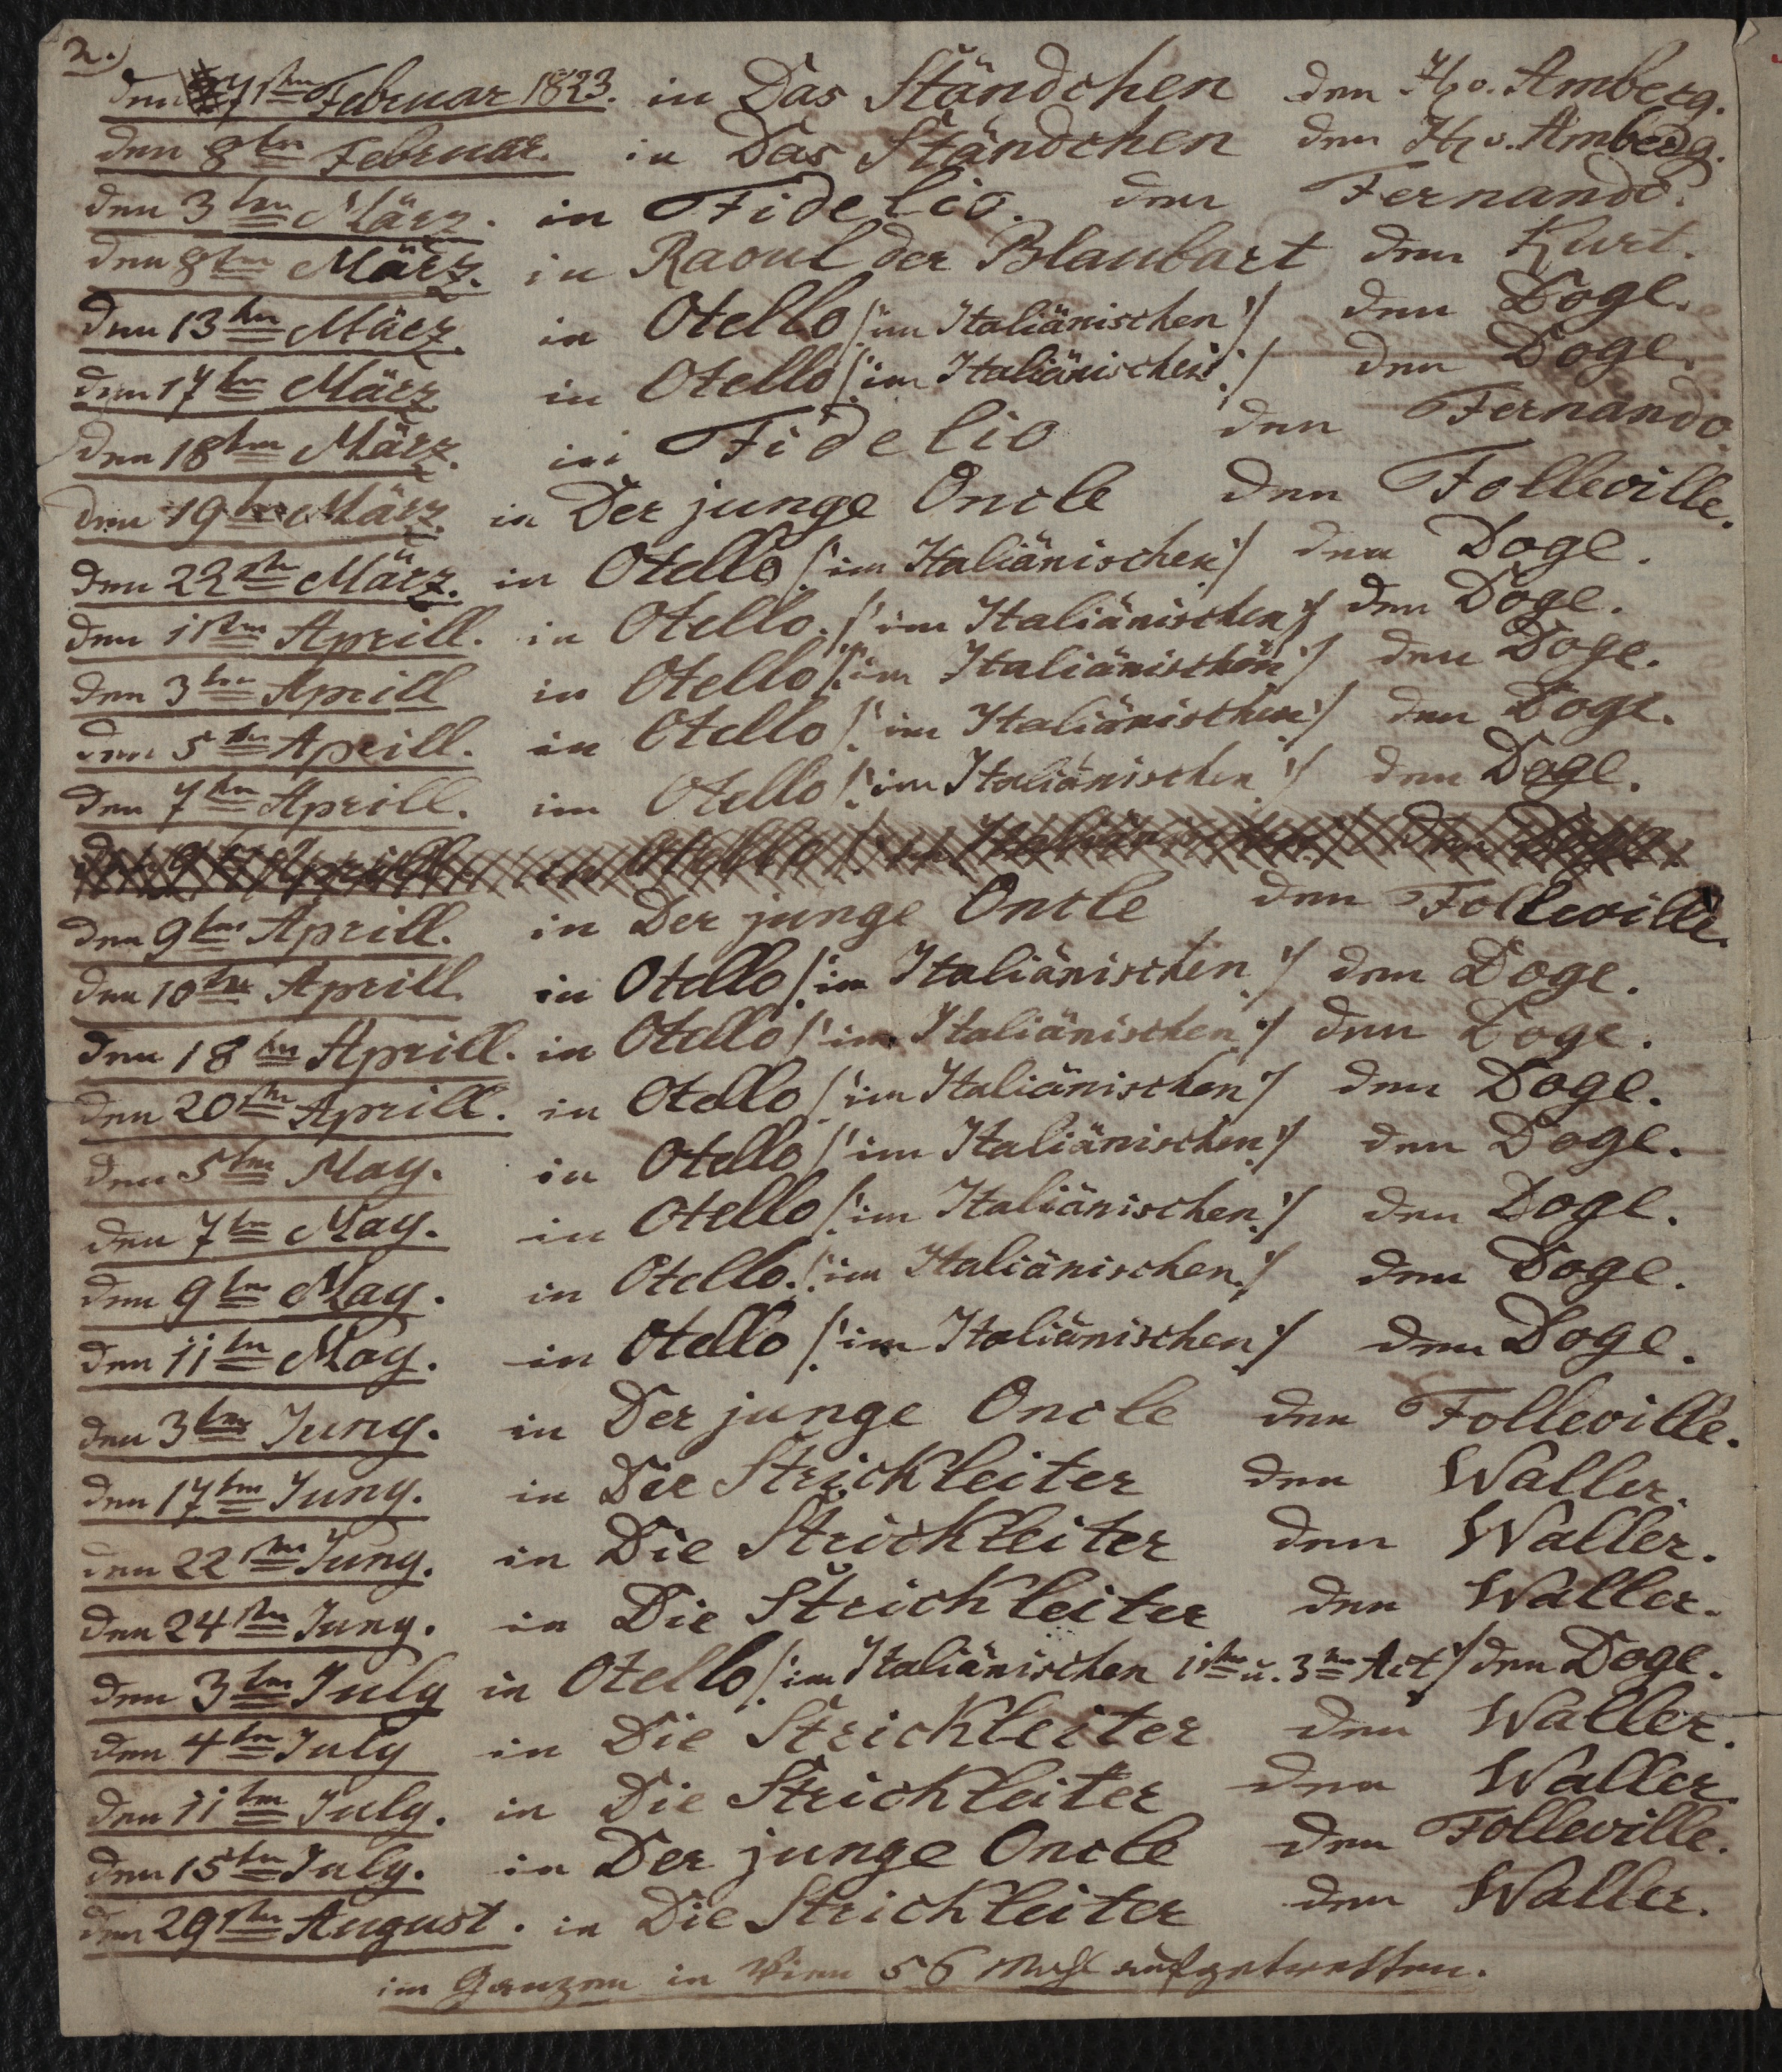 2.)
den 1sten Februar 1823. in Das Ständchen den H. v. Amberg.
den 8ten Februar. in Das Ständchen den H. v. Amberg.
den 3ten März. in Fidelio. den Fernando.
den 8ten März. in Raoul der Blaubart den Kurt.
den 13ten März. in Otello /: im Italiänischen :/ den Doge.
den 17ten März in Otello /: im Italiänischen :/ den Doge.
den 18ten März. in Fidelio den Fernando.
den 19ten März. in Der junge Oncle den Folleville.
den 22sten März. in Otello /: im Italiänischen :/ den Doge.
den 1sten Aprill. in Otello. /: im Italiänischen :/ den Doge.
den 3ten Aprill in Otello /: im Italiänischen :/ den Doge.
den 5ten Aprill. in Otello /: im Italiänischen :/ den Doge.
den 7ten Aprill. im Otello /: im Italiänischen :/ den Doge.
den 9ten Aprill. in Otello /: im Italiänischen :/ den Doge.
den 9ten Aprill. in Der junge Oncle den Folleville.
den 10ten Aprill. in Otello /: im Italiänischen :/ den Doge.
den 18ten Aprill. in Otello /: im Italiänischen :/ den Doge.
den 20sten Aprill. in Otello /: im Italiänischen :/ den Doge.
den 5ten May. in Otello /: im Italiänischen :/ den Doge.
den 7ten May. in Otello /: im Italiänischen :/ den Doge.
den 9ten May. in Otello. /: im Italiänischen :/ den Doge.
den 11ten May. in Otello /: im Italiänischen :/ den Doge.
den 3ten Juny. in Der junge Oncle den Folleville.
den 17ten Juny. in Die Strickleiter den Waller.
den 22sten Juny. in Die Strickleiter den Waller.
den 24sten Juny. in Die Strickleiter den Waller.
den 3ten July in Otello /: im Italiänischen 1sten u. 3ten Act :/ den Doge.
den 4ten July in Die Strickleiter den Waller.
den 11ten July. in Die Strickleiter den Waller.
den 15ten July. in Der junge Oncle den Folleville.
den 29sten August. in Die Strickleiter den Waller.
im Ganzen in Wien 56 Mahl aufgetretten.